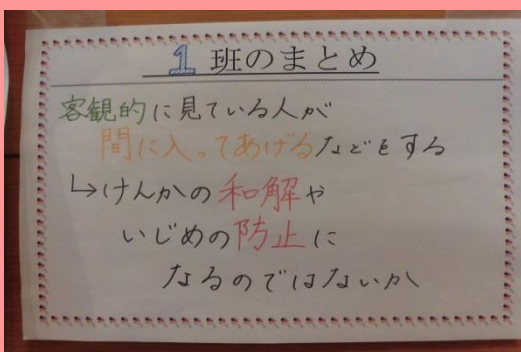 1 班のまとめ
客観的に見ている人が
間に入ってあげるなどをする
↳けんかの和解や
いじめの防止に
なるのではないか